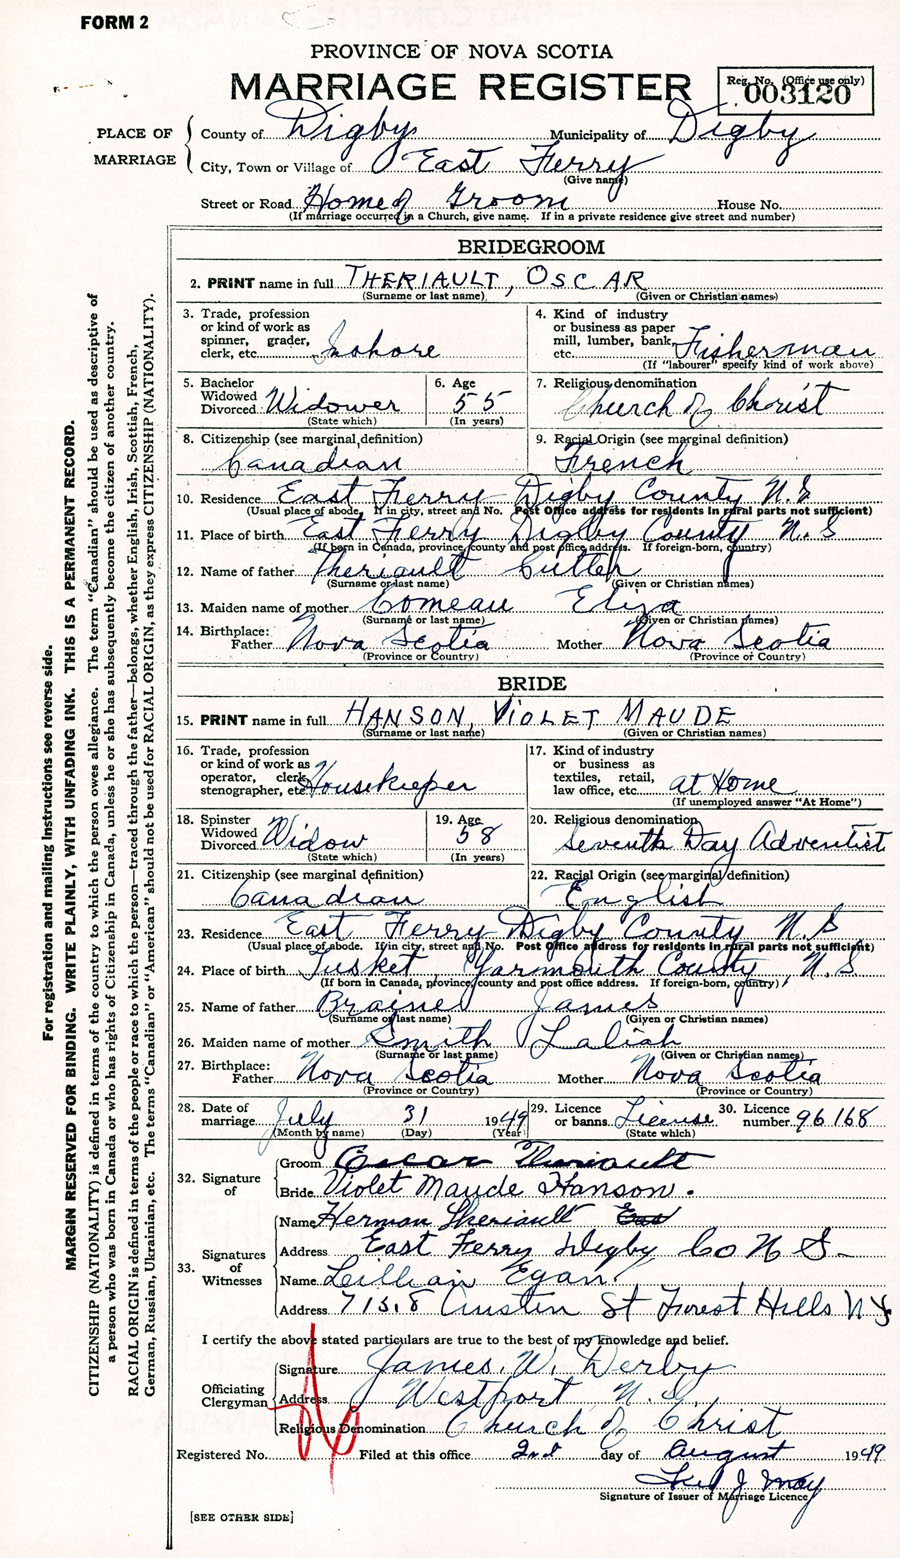 FORM 2
PROVINCE OF NOVA SCOTIA
MARRIAGE REGISTER
Reg. No. (Office use only)
003120
PLACE OF MARRIAGE
County of Digby Municipality of Digby
City, Town or Village of East Ferry
(Give name)
Street or Road Home of Groom House No.
(If marriage occurred in a Church, give name. If in a private residence give street and number)
BRIDEGROOM
2. PRINT name in full THERIAULT, OSCAR
(Surname or last name) (Given or Christian names)
3. Trade, profession or kind of work as spinner, grader, clerk, etc. Inshore
4. Kind of industry or business as paper mill, lumber, bank, etc. Fisherman
(If "labourer" specify kind of work above)
5. Bachelor Widowed Divorced Widower
(State which)
6. Age 55
(In years)
7. Religious denomination Church of Christ
8. Citizenship (see marginal definition) Canadian
9. Racial Origin (see marginal definition) French
10. Residence East Ferry Digby County N.S
(Usual place of abode. If in city, street and No. Post Office address for residents in rural parts not sufficient)
11. Place of birth East Ferry Digby County N.S
(If born in Canada, province, county and post office address. If foreign-born, country)
12. Name of father Theriault Cutler
(Surname or last name) (Given or Christian names)
13. Maiden name of mother Comeau Eliza
(Surname or last name) (Given or Christian names)
14. Birthplace: Father Nova Scotia Mother Nova Scotia
(Province or Country) (Province or Country)
BRIDE
15. PRINT name in full HANSON, VIOLET MAUDE
(Surname or last name) (Given or Christian names)
16. Trade, profession or kind of work as operator, clerk, stenographer, etc. Housekeeper
17. Kind of industry or business as textiles, retail, law office, etc. at Home
(If unemployed answer "At Home")
18. Spinster Widowed Divorced Widow
(State which)
19. Age 58
(In years)
20. Religious denomination Seventh Day Adventist
21. Citizenship (see marginal definition) Canadian
22. Racial Origin (see marginal definition) English
23. Residence East Ferry Digby County N.S
(Usual place of abode. If in city, street and No. Post Office address for residents in rural parts not sufficient)
24. Place of birth Tusket, Yarmouth County, N.S
(If born in Canada, province, county and post office address. If foreign-born, country)
25. Name of father Brainel James
(Surname or last name) (Given or Christian names)
26. Maiden name of mother Smith Laliah
(Surname or last name) (Given or Christian names)
27. Birthplace: Father Nova Scotia Mother Nova Scotia
(Province or Country) (Province or Country)
28. Date of marriage July 31 1949
(Month by name) (Day) (Year)
29. Licence or banns License
(State which)
30. Licence number 96168
32. Signature of
Groom Oscar Theriault
Bride Violet Maude Hanson.
33. Signatures of Witnesses
Name Herman Theriault
Address East Ferry Digby Co N S
Name Lillian Egan
Address 7158 Austin St Forest Hills N.Y.
I certify the above stated particulars are true to the best of my knowledge and belief.
Officiating Clergyman
Signature James W. Derby
Address Westport N.S.
Religious Denomination Church of Christ
Registered No. Filed at this office 2nd day of August 1949
Signature of Issuer of Marriage Licence
[SEE OTHER SIDE]
For registration and mailing instructions see reverse side.
MARGIN RESERVED FOR BINDING. WRITE PLAINLY, WITH UNFADING INK. THIS IS A PERMANENT RECORD.
CITIZENSHIP (NATIONALITY) is defined in terms of the country to which the person owes allegiance. The term "Canadian" should be used as descriptive of
a person who was born in Canada or who has rights of Citizenship in Canada, unless he or she has subsequently become the citizen of another country.
RACIAL ORIGIN is defined in terms of the people or race to which the person—traced through the father—belongs, whether English, Irish, Scottish, French,
German, Russian, Ukrainian, etc. The terms "Canadian" or "American" should not be used for RACIAL ORIGIN, as they express CITIZENSHIP (NATIONALITY).